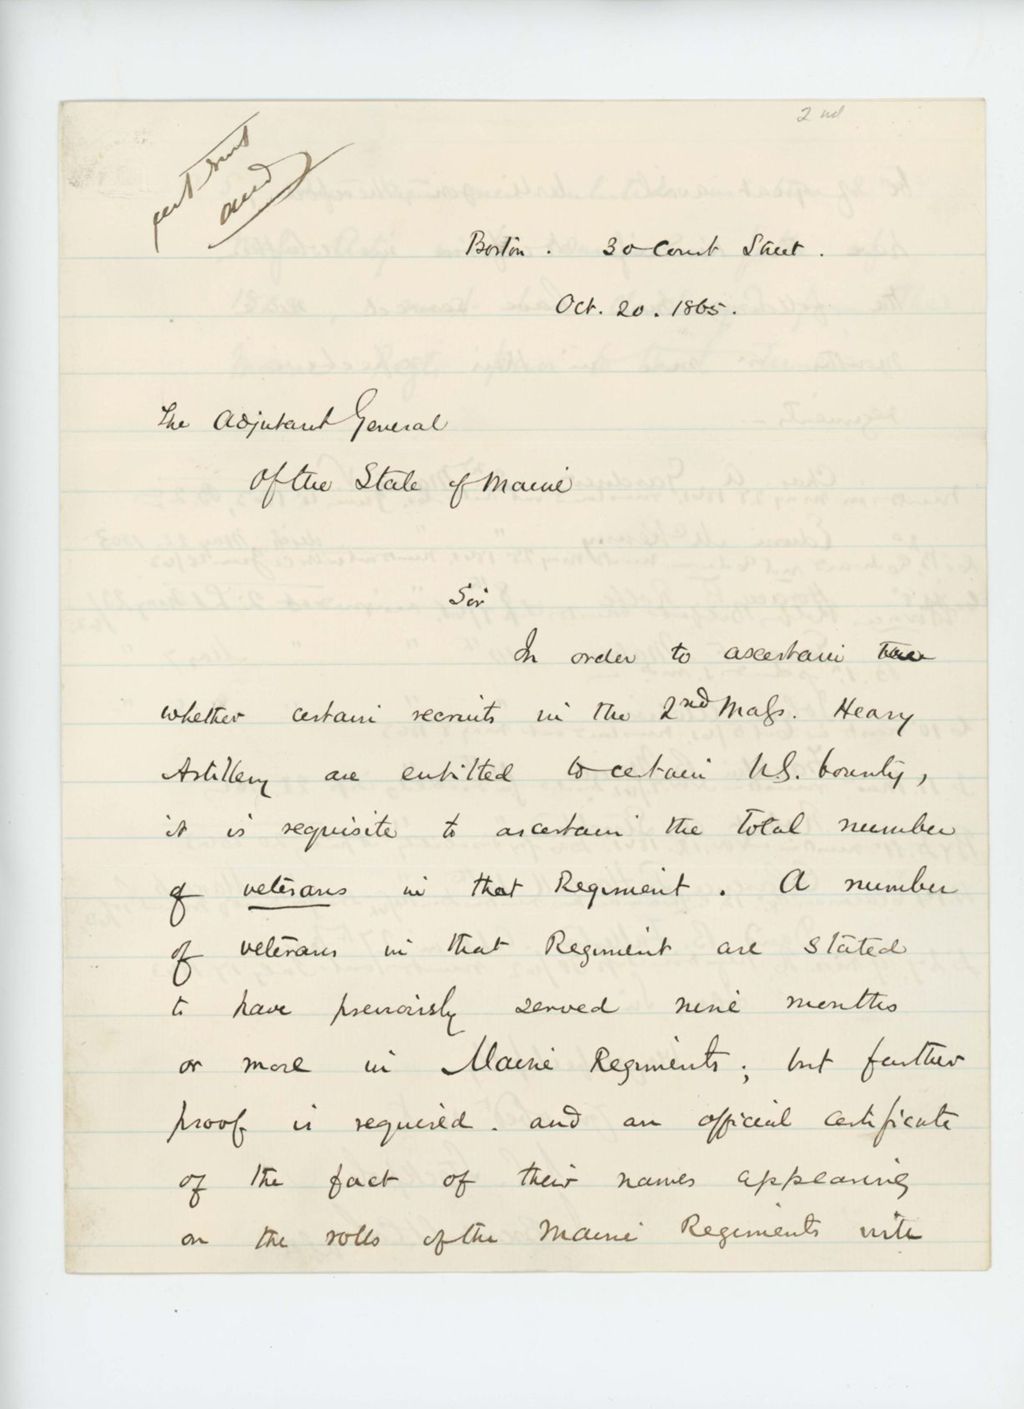 2nd
and
Boston. 30 Court Street.
Oct. 20. 1865.
The Adjutant General
Of the State of Maine
Sir
In order to ascertain
whether certain recruits in the 2nd Mass. Heavy
Artillery are entitled to certain U.S. bounty,
it is requisite to ascertain the total number
of veterans in that Regiment. A number
of veterans in that Regiment are stated
to have previously served nine months
or more in Maine Regiments; but further
proof is required. and an official certificate
of the fact of their names appearing
on the rolls of the Maine Regiments with